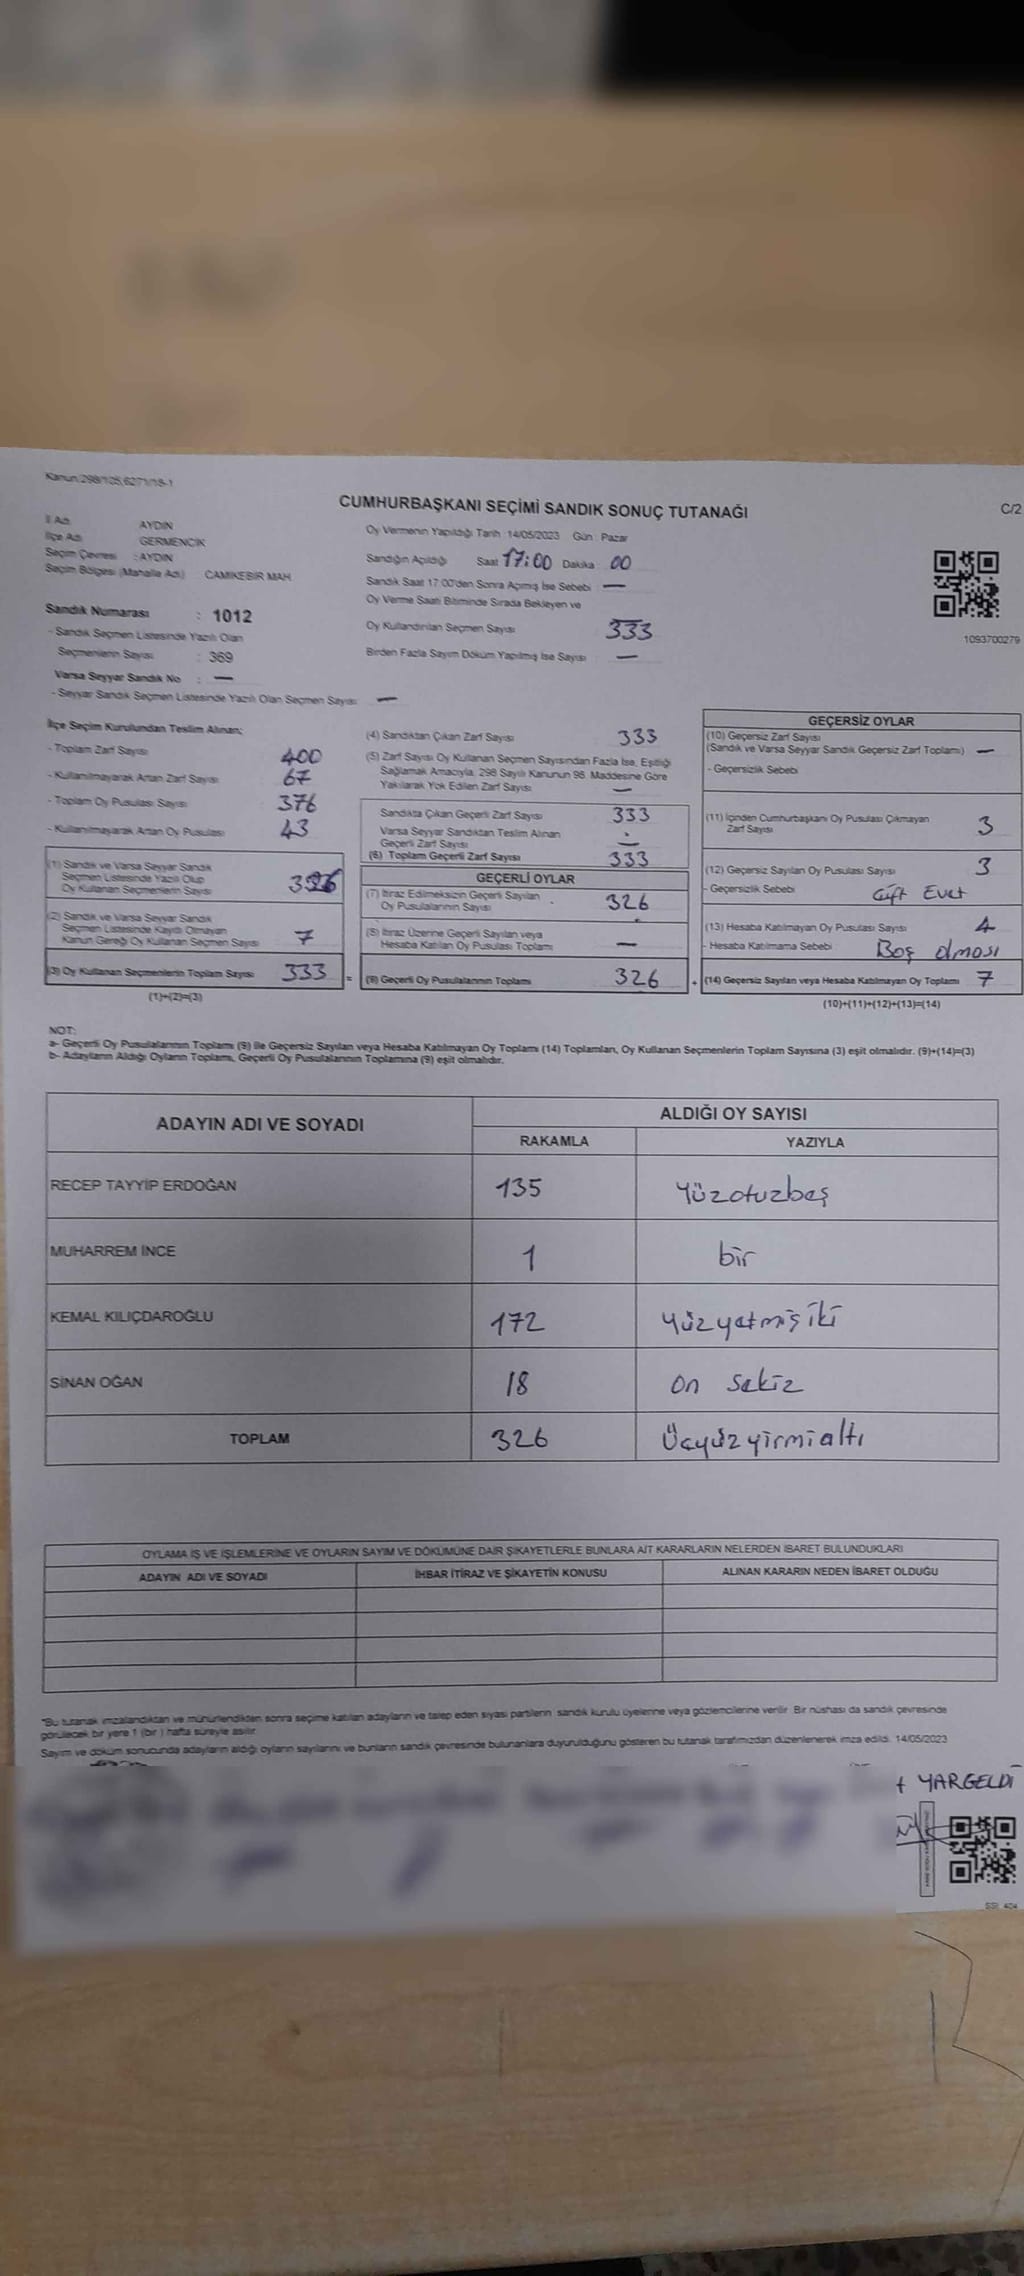 Kanun/298/105,6271/18-1
CUMHURBAŞKANI SEÇİMİ SANDIK SONUÇ TUTANAĞI
C/2
İl Adı AYDIN
İlçe Adı GERMENCİK
Seçim Çevresi : AYDIN
Seçim Bölgesi (Mahalle Adı) CAMİKEBİR MAH
Sandık Numarası : 1012
- Sandık Seçmen Listesinde Yazılı Olan
Seçmenlerin Sayısı : 369
Varsa Seyyar Sandık No : —
- Seyyar Sandık Seçmen Listesinde Yazılı Olan Seçmen Sayısı —
Oy Vermenin Yapıldığı Tarih : 14/05/2023 Gün : Pazar
Sandığın Açıldığı Saat 17:00 Dakika 00
Sandık Saat 17:00'den Sonra Açımış İse Sebebi —
Oy Verme Saati Bitiminde Sırada Bekleyen ve
Oy Kullandırılan Seçmen Sayısı 333
Birden Fazla Sayım Döküm Yapılmış İse Sayısı —
1093700279
İlçe Seçim Kurulundan Teslim Alınan;
- Toplam Zarf Sayısı 400
- Kullanılmayarak Artan Zarf Sayısı 67
- Toplam Oy Pusulası Sayısı 376
- Kullanılmayarak Artan Oy Pusulası 43
(1) Sandık ve Varsa Seyyar Sandık
Seçmen Listesinde Yazılı Olup
Oy Kullanan Seçmenlerin Sayısı 326
(2) Sandık ve Varsa Seyyar Sandık
Seçmen Listesinde Kayıtlı Olmayan
Kanun Gereği Oy Kullanan Seçmen Sayısı 7
(3) Oy Kullanan Seçmenlerin Toplam Sayısı 333 =
(1)+(2)=(3)
(4) Sandıktan Çıkan Zarf Sayısı 333
(5) Zarf Sayısı Oy Kullanan Seçmen Sayısından Fazla İse, Eşitliği
Sağlamak Amacıyla, 298 Sayılı Kanunun 98. Maddesine Göre
Yakılarak Yok Edilen Zarf Sayısı —
Sandıkta Çıkan Geçerli Zarf Sayısı 333
Varsa Seyyar Sandıktan Teslim Alınan
Geçerli Zarf Sayısı —
(6) Toplam Geçerli Zarf Sayısı 333
GEÇERLİ OYLAR
(7) İtiraz Edilmeksizin Geçerli Sayılan
Oy Pusulalarının Sayısı 326
(8) İtiraz Üzerine Geçerli Sayılan veya
Hesaba Katılan Oy Pusulası Toplamı —
(9) Geçerli Oy Pusulalarının Toplamı 326 +
GEÇERSİZ OYLAR
(10) Geçersiz Zarf Sayısı
(Sandık ve Varsa Seyyar Sandık Geçersiz Zarf Toplamı) —
- Geçersizlik Sebebi
(11) İçinden Cumhurbaşkanı Oy Pusulası Çıkmayan
Zarf Sayısı 3
(12) Geçersiz Sayılan Oy Pusulası Sayısı 3
- Geçersizlik Sebebi Çift Evet
(13) Hesaba Katılmayan Oy Pusulası Sayısı 4
- Hesaba Katılmama Sebebi Boş olması
(14) Geçersiz Sayılan veya Hesaba Katılmayan Oy Toplamı 7
(10)+(11)+(12)+(13)=(14)
NOT:
a- Geçerli Oy Pusulalarının Toplamı (9) ile Geçersiz Sayılan veya Hesaba Katılmayan Oy Toplamı (14) Toplamları, Oy Kullanan Seçmenlerin Toplam Sayısına (3) eşit olmalıdır. (9)+(14)=(3)
b- Adayların Aldığı Oyların Toplamı, Geçerli Oy Pusulalarının Toplamına (9) eşit olmalıdır.
ADAYIN ADI VE SOYADI ALDIĞI OY SAYISI
RAKAMLA YAZIYLA
RECEP TAYYİP ERDOĞAN 135 Yüzotuzbeş
MUHARREM İNCE 1 bir
KEMAL KILIÇDAROĞLU 172 Yüzyetmiş iki
SİNAN OĞAN 18 on sekiz
TOPLAM 326 Üçyüzyirmialtı
OYLAMA İŞ VE İŞLEMLERİNE VE OYLARIN SAYIM VE DÖKÜMÜNE DAİR ŞİKAYETLERLE BUNLARA AİT KARARLARIN NELERDEN İBARET BULUNDUKLARI
ADAYIN ADI VE SOYADI İHBAR İTİRAZ VE ŞİKAYETİN KONUSU ALINAN KARARIN NEDEN İBARET OLDUĞU
*Bu tutanak imzalandıktan ve mühürlendikten sonra seçime katılan adayların ve talep eden siyasi partilerin sandık kurulu üyelerine veya gözlemcilerine verilir. Bir nüshası da sandık çevresinde
görülecek bir yere 1 (bir) hafta süreyle asılır.
Sayım ve döküm sonucunda adayların aldığı oyların sayılarını ve bunların sandık çevresinde bulunanlara duyurulduğunu gösteren bu tutanak tarafımızdan düzenlenerek imza edildi. 14/05/2023
YARGELDİ
SSI: 404